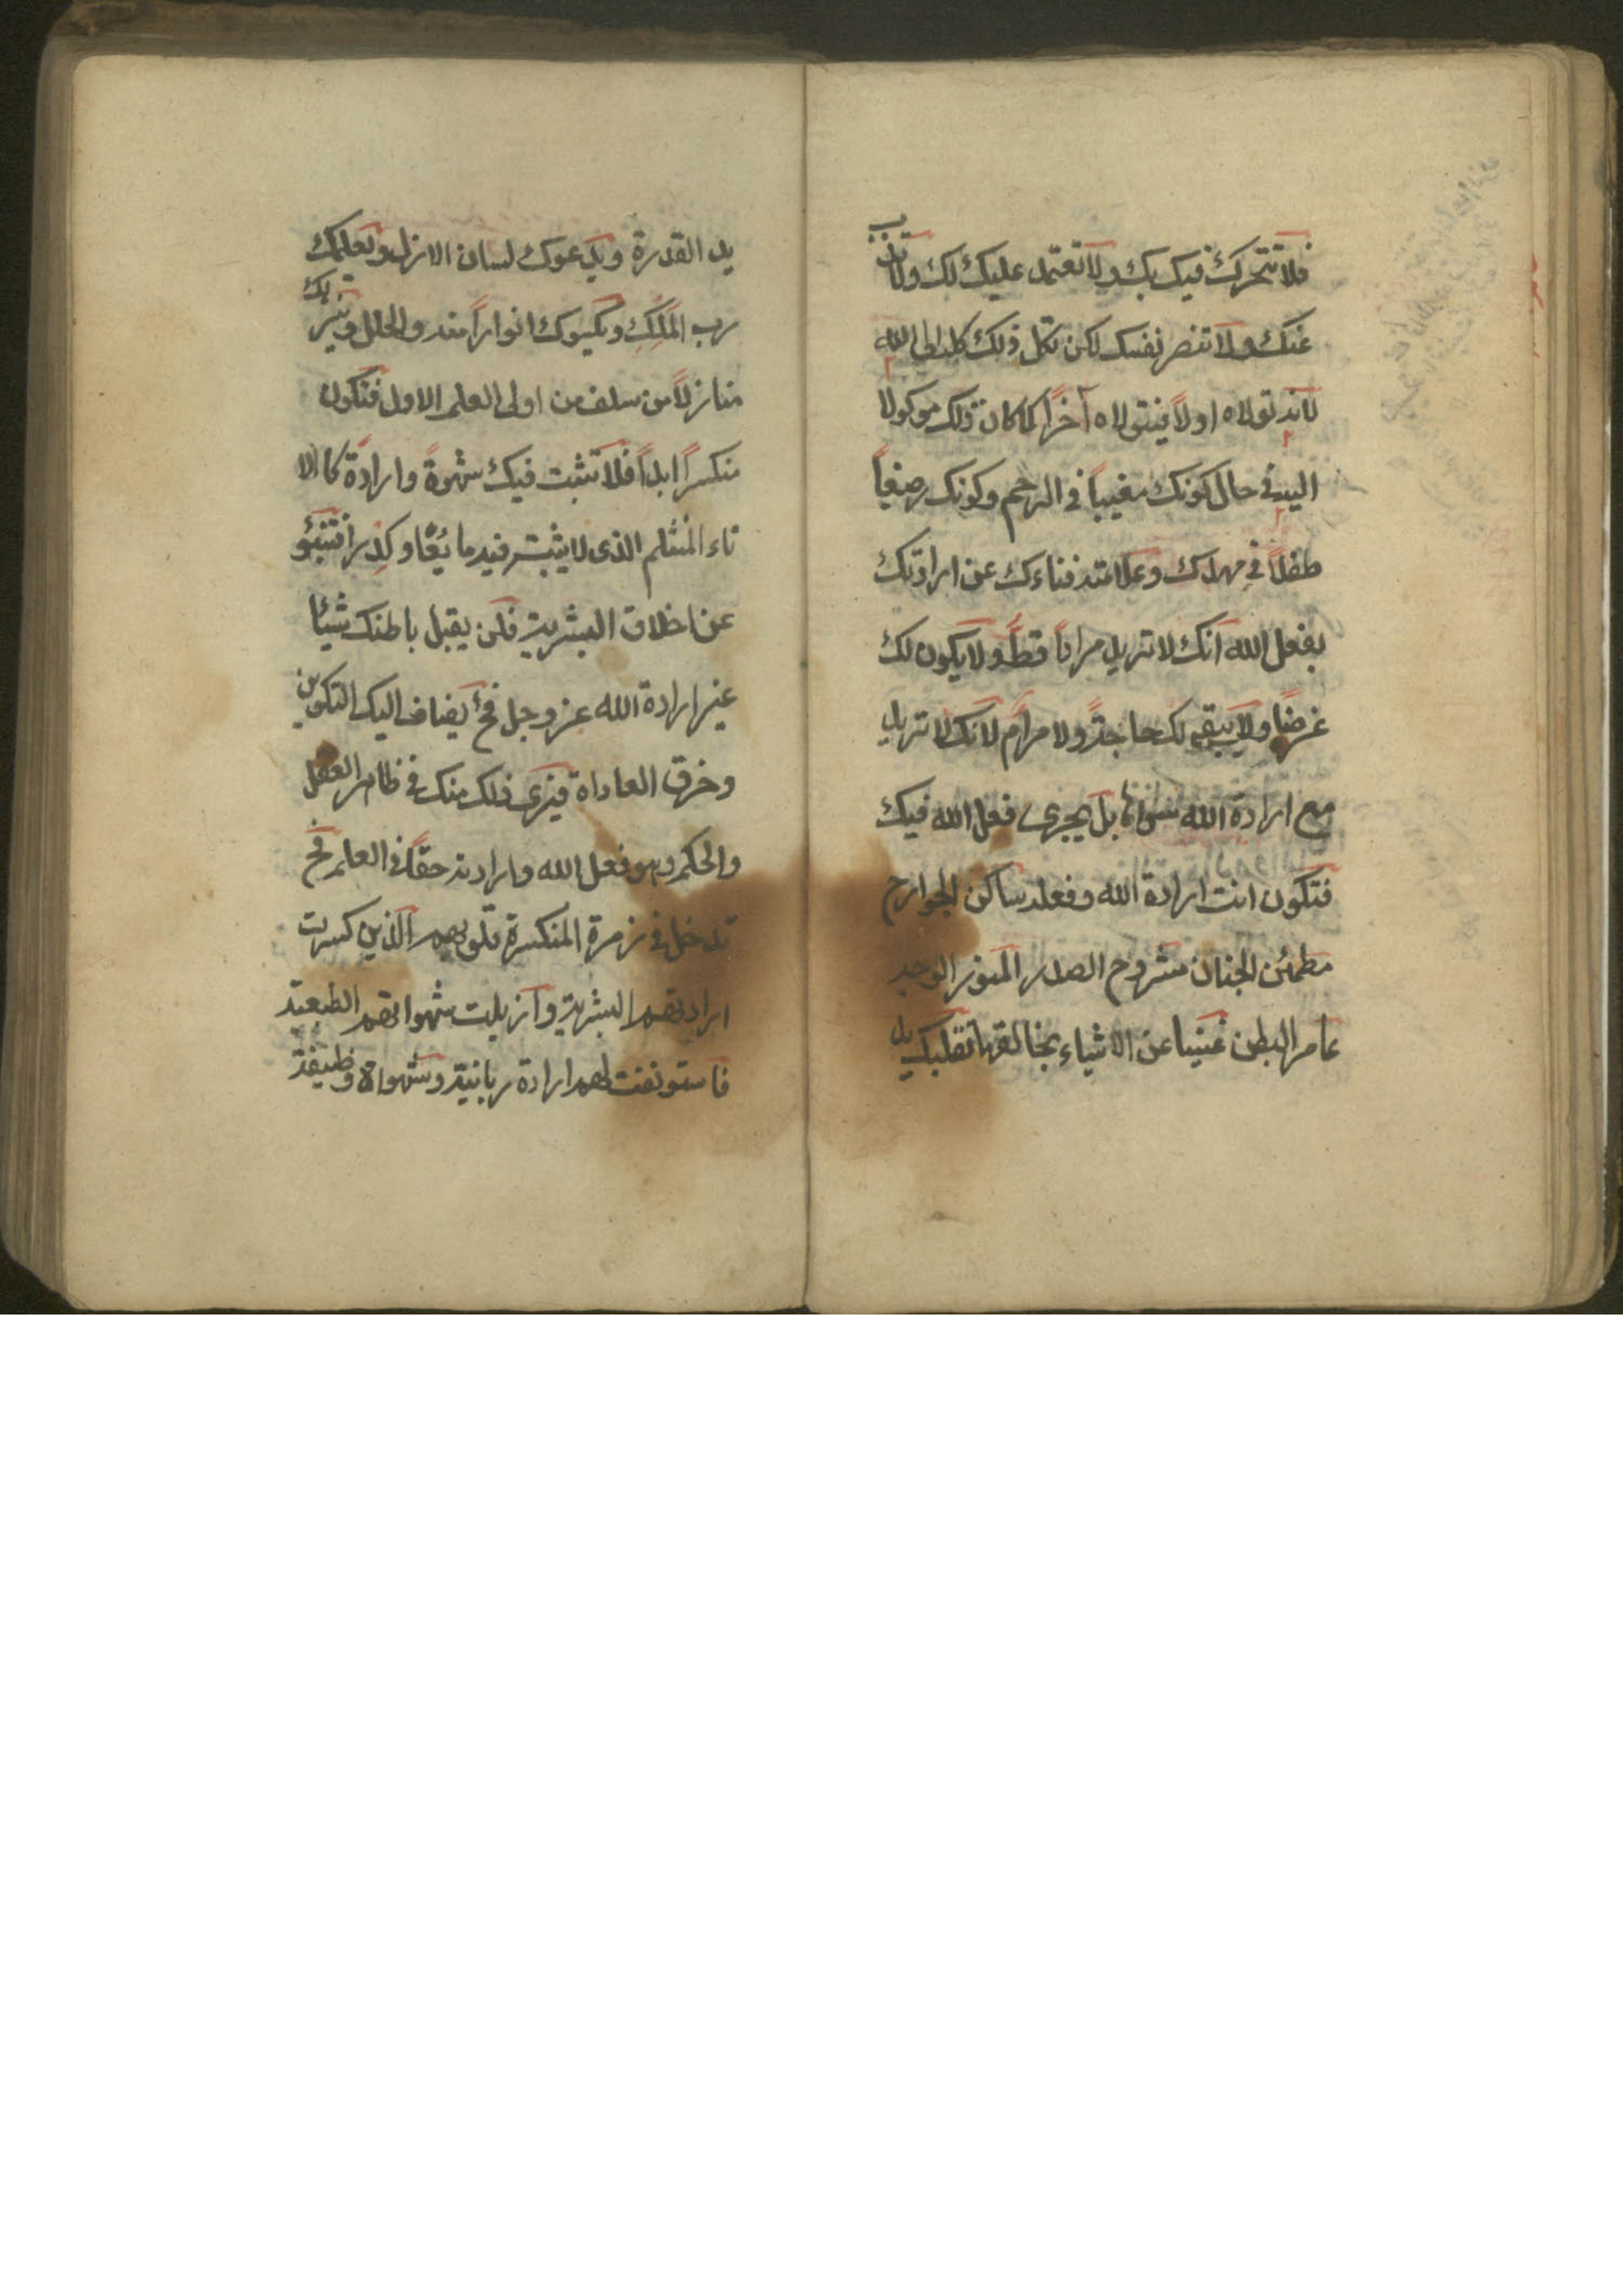 فلا تتحرك فيك بك ولا تعتمد عليك لك ولا تذب
عنك ولا تنصر نفسك لكن تكل ذلك كله الى الله
لانه تولاه اولاً فيتولاه آخراً كما كان ذلك موكولا
اليه في حال كونك مغيباً في الرحم وكونك رضيعاً
طفلاً في مهدك وعلامته فناءك عن ارادتك
بفعل الله انك لا تريد مراداً قط ولا يكون لك
غرضاً ولا يبقى لك حاجة ولا مرام لانك لا تريد
مع ارادة الله سواها بل يجرى فعل الله فيك
فتكون انت ارادة الله وفعله ساكن الجوارح
مطمئن الجنان مشروح الصدر المنور الوجه
عامر البطن غنيا عن الاشياء بخالقها تقلبك يد
يد القدرة ويدعوك لسان الازل ويعلمك
رب الملك ويكسوك انواراً منه والحلل وينزلك
منازلاً من سلف من اولى العلم الاول فتكون
منكسراً ابداً فلا تثبت فيك شهوة وارادة كالا
ناء المنثلم الذى لا يثبت فيه مايعًا وكدراً فتنبؤ
عن اخلاق البشرية فلن يقبل باطنك شيئا
غير ارادة الله عز وجل فح يضاف اليك التكوين
وخرق العاداة فيرى ذلك منك في ظاهر العقل
والحكم وهو فعل الله وارادته حقاً في العلم فح
تدخل في زمرة المنكسرة قلوبهم الذين كسرت
ارادتهم البشرية وازيلت شهواتهم الطبعية
فاستونفت لهم ارادة ربانية وشهواة وظيفة